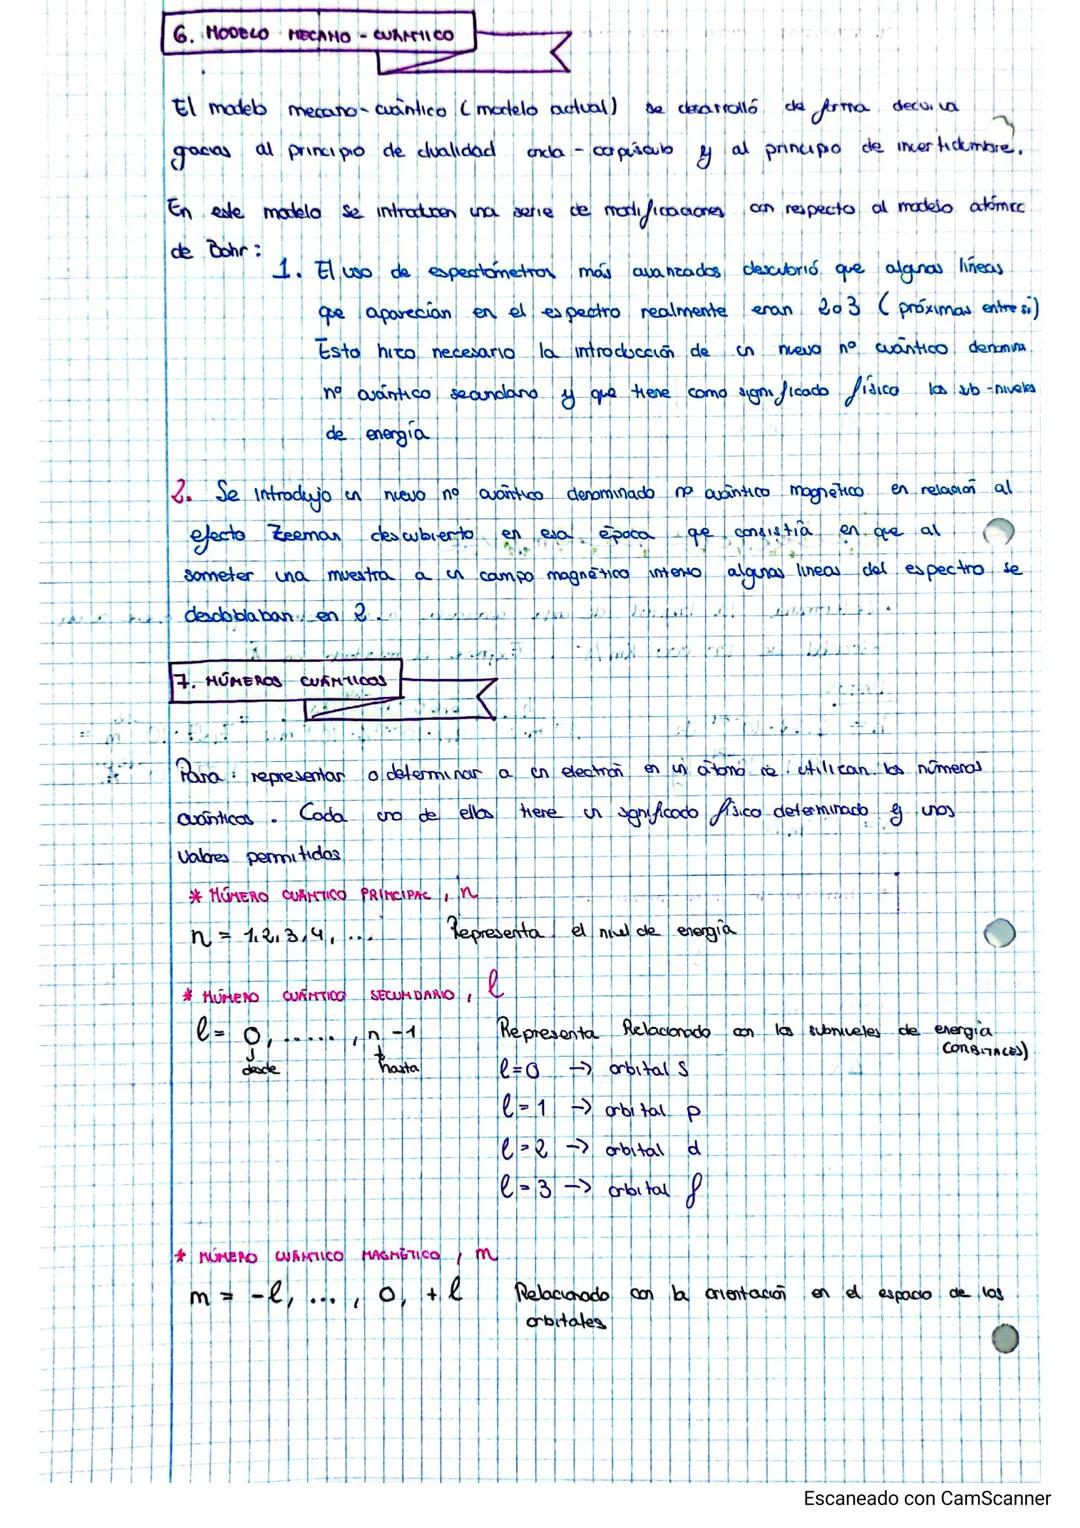 6. MODELO MECANO - CUÁNTICO
El modelo mecano-cuántico (modelo actual) se desarrolló de forma decisiva
gracias al principio de dualidad onda - corpúsculo y al principio de incertidumbre.
En este modelo se introducen una serie de modificaciones con respecto al modelo atómico
de Bohr:
1. El uso de espectómetros más avanzados descubrió que algunas líneas
que aparecían en el espectro realmente eran 2 o 3 (próximas entre si)
Esto hizo necesario la introducción de un nuevo nº cuántico denomina
nº cuántico secundario y que tiene como significado físico los sub-niveles
de energía
2. Se introdujo un nuevo nº cuántico denominado nº cuántico magnético en relación al
efecto Zeeman descubierto en esa época que consistía en que al
someter una muestra a un campo magnético intenso algunas lineas del espectro se
desdoblaban en 2.
7. NÚMEROS CUÁNTICOS
Para representar o determinar a un electrón en un átomo se utilizan los números
cuánticos. Cada uno de ellos tiene un significado físico determinado y unos
valores permitidos
* NÚMERO CUÁNTICO PRINCIPAL, n
n = 1,2,3,4, ... Representa el nivel de energía
* NÚMERO CUÁNTICO SECUNDARIO, l
l = 0, ......, n-1 Representa Relacionado con los subniveles de energía
desde hasta (ORBITALES)
l=0 -> orbital s
l=1 -> orbital p
l=2 -> orbital d
l=3 -> orbital f
* NÚMERO CUÁNTICO MAGNÉTICO, m
m = -l, ..., 0, +l Relacionado con la orientación en el espacio de los
orbitales
Escaneado con CamScanner